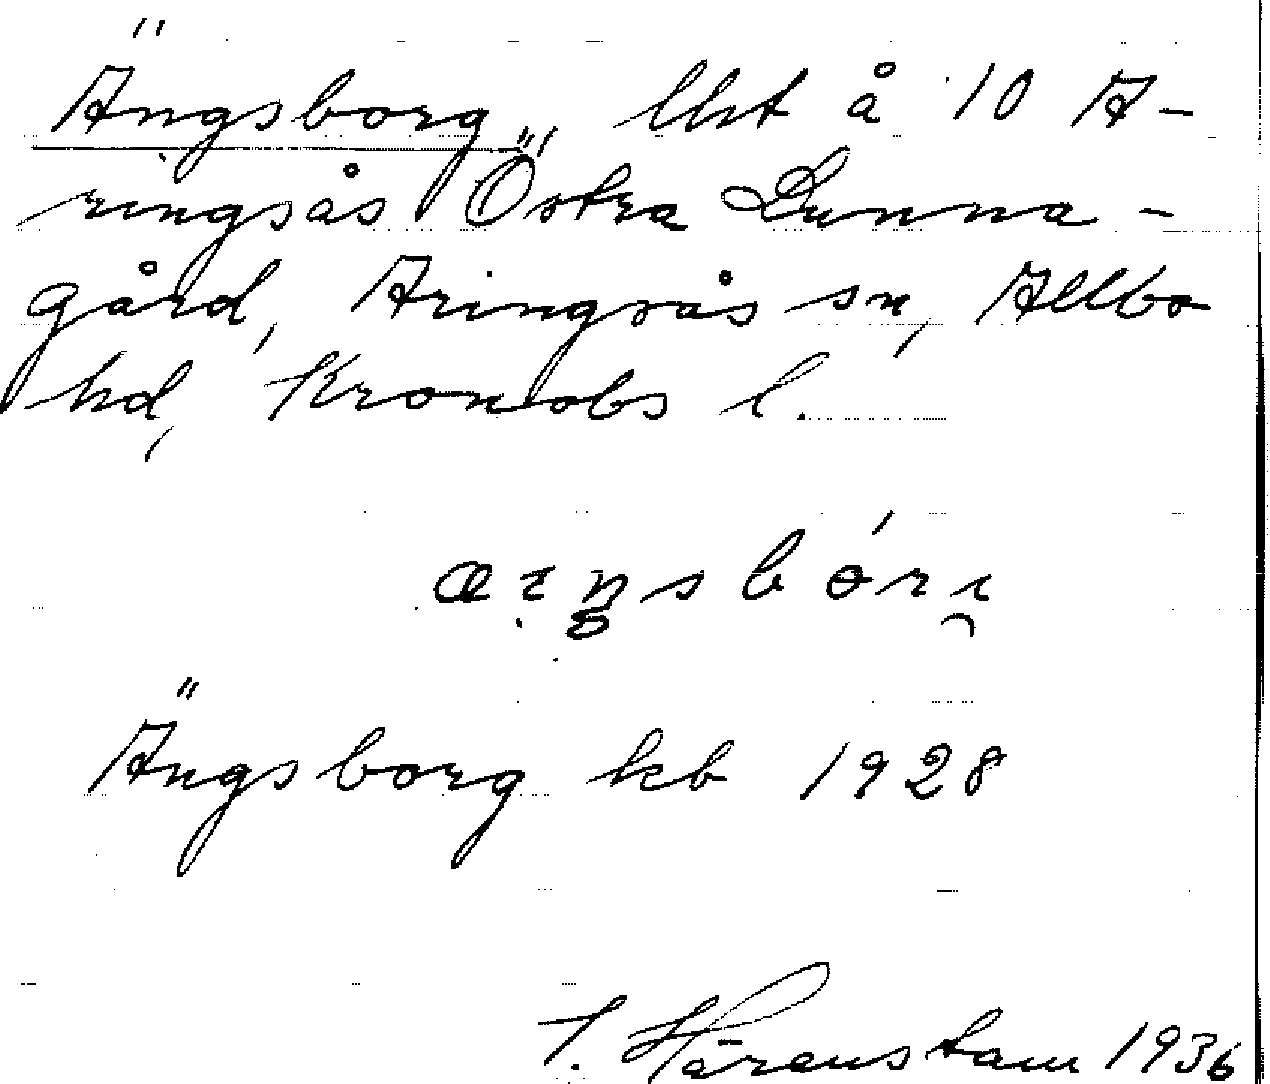 Ängsborg, lht å 10 A-
ringsås Östra Lunna-
gård, Aringsås sn, Allbo
hd, Kronobs l.
Ängsborg kb 1928
J. Härenstam 1936